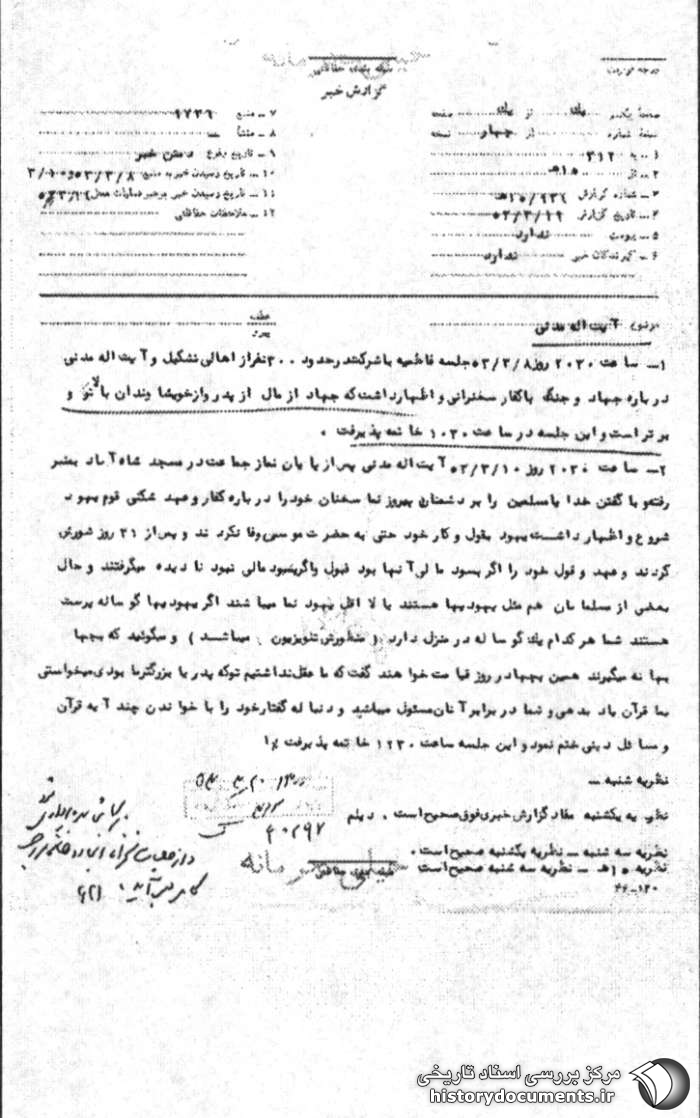 گزارش خبر
صفحه یکم از یک صفحه
نسخه شماره از چهار نسخه
۱ - به ۳۱۲
۲ - از ۱۵ه
۳ - شماره گزارش
۴ - تاریخ گزارش
۵ - پیوست ندارد
۶ - گیرندگان خبر ندارد
۷ - منبع ۱۷۳۹
۸ - منشأ
۹ - تاریخ وقوع متن خبر
۱۰ - تاریخ رسیدن خبر به منبع
۱۱ - تاریخ رسیدن خبر برهبر عملیات محل
۱۲ - ملاحظات حفاظتی
موضوع آیت اله مدنی
عطف
پیرو
۱- ساعت ۲۰۳۰ روز ۵۳/۳/۸ جلسه فاطمیه با شرکت در حدود ۳۰۰ نفر از اهالی تشکیل و آیت اله مدنی
درباره جهاد و جنگ با کفار سخنرانی و اظهار داشت که جهاد از مال از پدر و از خویشاوندان بالاتر و
برتر است و این جلسه در ساعت ۱۰۳۰ خاتمه پذیرفت .
۲- ساعت ۲۰۳۰ روز ۵۳/۳/۱۰ آیت اله مدنی پس از پایان نماز جماعت در مسجد شاه آباد بمنبر
رفته و با گفتن خدایا مسلمین را بر دشمنان پیروز نما سخنان خود را درباره کفار و عهد شکنی قوم یهود
شروع و اظهار داشت یهود بقول و کار خود حتی به حضرت موسی وفا نکردند و پس از ۳۱ روز شورش
کردند و عهد و قول خود را اگر بسود مالی آنها بود قبول و اگر بسود مالی نبود نادیده میگرفتند و حال
بعضی از مسلمانان هم مثل یهودیها هستند یا لااقل یهود نما میباشند اگر یهودیها گوساله پرست
هستند شما هر کدام یک گوساله در منزل دارد ( منظورش تلویزیون میباشد ) و میگوئید که بچها
بهانه میگیرند همین بچها در روز قیامت خواهند گفت که ما عقل نداشتیم تو که پدر یا بزرگتر ما بودی میخواستی
بما قرآن یاد بدهی و شما در برابر آنان مسئول میباشید و دنباله گفتار خود را با خواندن چند آیه قرآن
و مسائل دینی ختم نمود و این جلسه ساعت ۱۲۳۰ خاتمه پذیرفت
نظریه شنبه -
نظریه یکشنبه مفاد گزارش خبری فوق صحیح است . دیلم
نظریه سه شنبه - نظریه یکشنبه صحیح است .
نظریه ۱۵ه - نظریه سه شنبه صحیح است
۴۰۲۹۷
۶۶-۱۲۰
خیلی محرمانه
مرکز بررسی اسناد تاریخی
historydocuments.ir